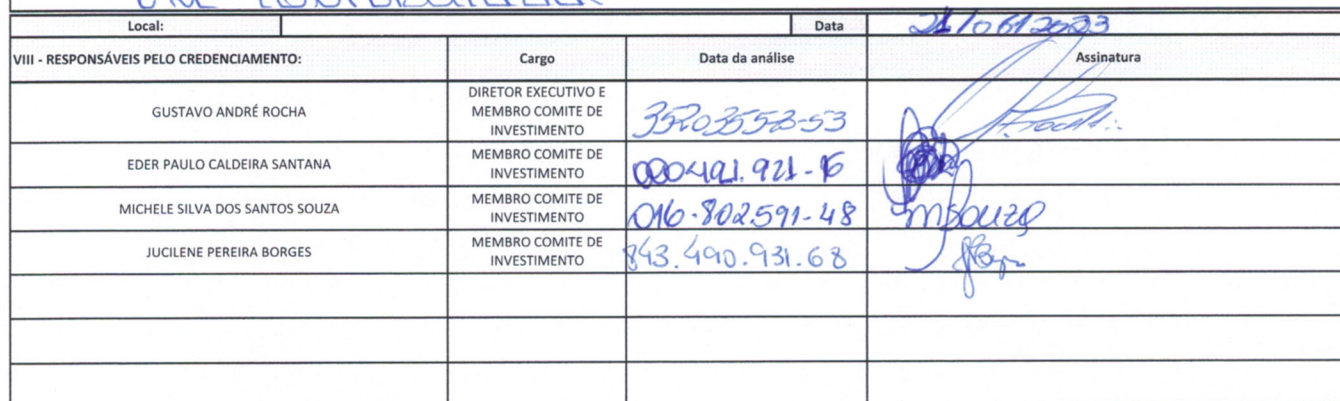 Local: Data 21/06/2023
VIII - RESPONSÁVEIS PELO CREDENCIAMENTO: Cargo Data da análise Assinatura
GUSTAVO ANDRÉ ROCHA DIRETOR EXECUTIVO E MEMBRO COMITE DE INVESTIMENTO
EDER PAULO CALDEIRA SANTANA MEMBRO COMITE DE INVESTIMENTO 000491.921-16
MICHELE SILVA DOS SANTOS SOUZA MEMBRO COMITE DE INVESTIMENTO 016.802.591-48 MSouza
JUCILENE PEREIRA BORGES MEMBRO COMITE DE INVESTIMENTO 843.490.931.68